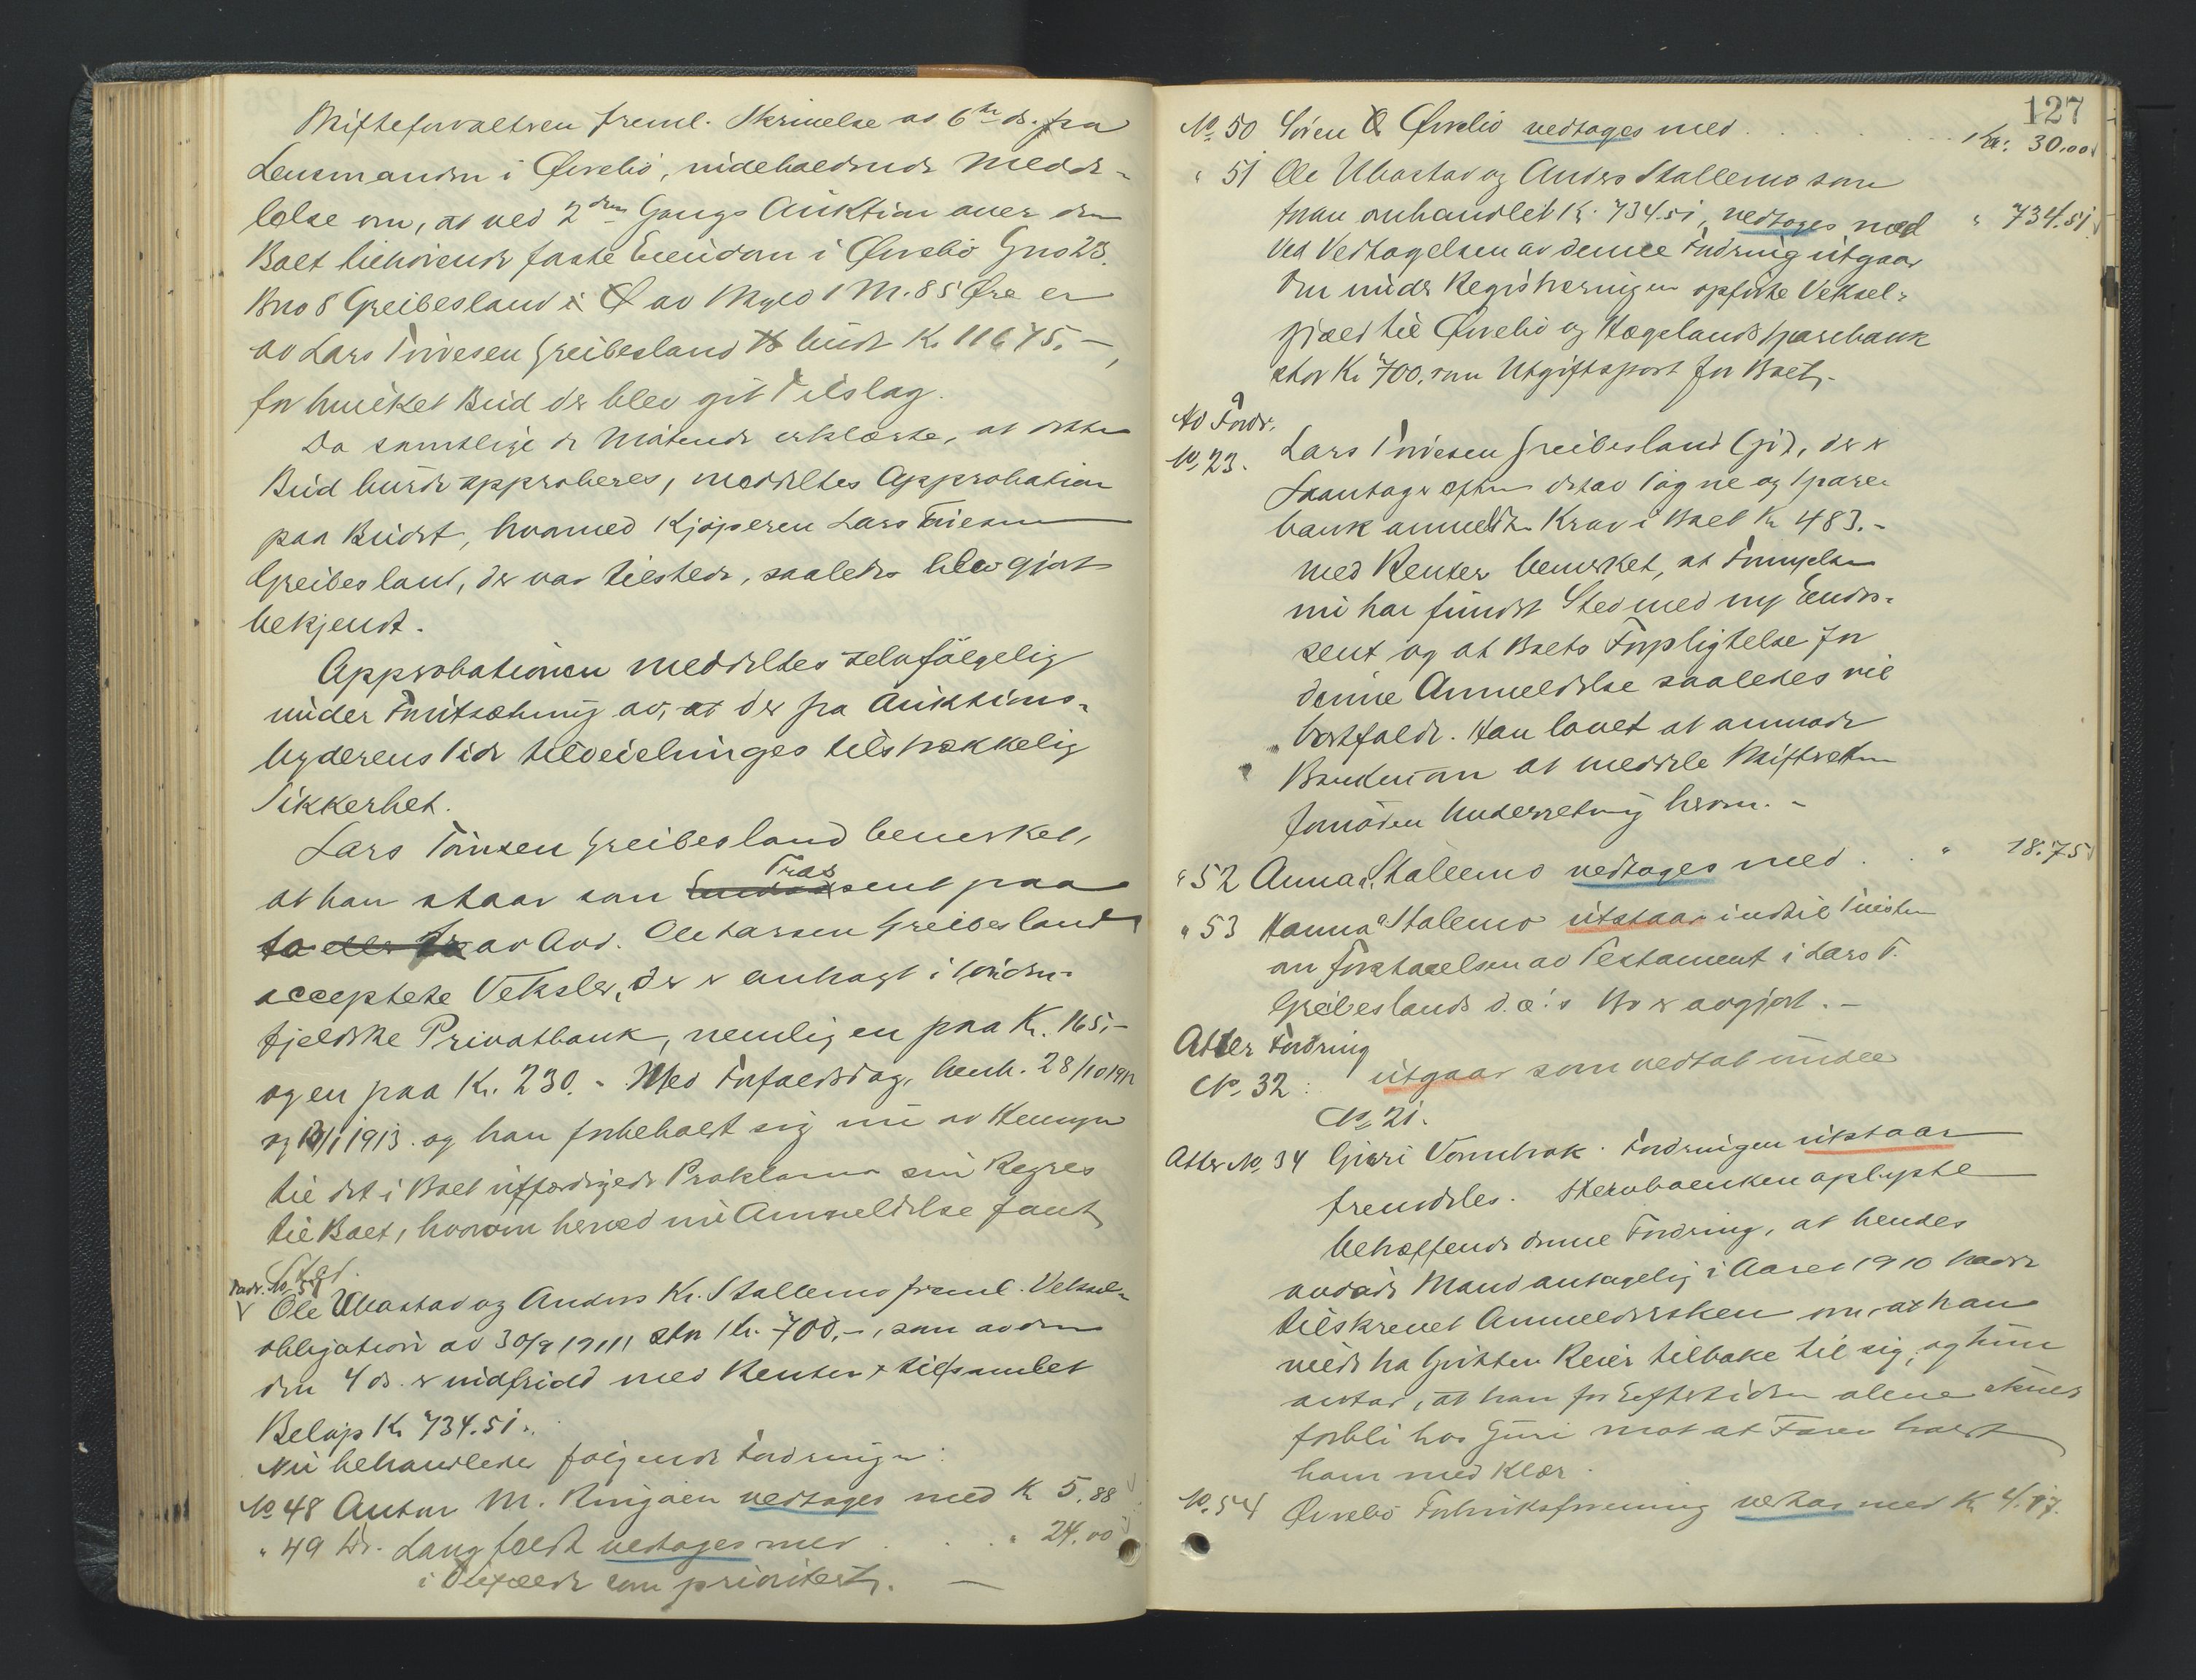 Skifteforvalteren freml. Skrivelse av 6te ds. fra
Lensmanden i Øvrebö, indeholdende Medde-
lelse om, at ved 2den Gangs Auktion over den
Boet tilhörende faste Eiendom i Øvrebö Gno 23.
Bno 8 Greibesland i Ø av Skyld 1 M. 85 Øre er
av Lars Greibesland budt K. 11675,-,
for hvilket Bud der blev git Tilslag.
Da samtlige de Mötende erklærte, at dette
Bud burde approberes, meddeltes Approbation
paa Budet, hvormed Kjöperen Lars
Greibesland, der var tilstede, saaledes blev gjort
bekjendt.
Approbationen meddeltes selvfölgelig
under Forutsætning av, at der fra Auktions-
byderens Side tilveiebringes tilstrækkelig
Sikkerhet.
Lars Greibesland bemerket,
at han staar som Trassent paa
av Avd. Ole Larsen Greibesland
accepterte Veksler, der er anbragt i Vesten-
fjeldske Privatbank, nemlig en paa Kr. 165,-
og en paa Kr. 230.- Med Forfaldsdag, henh. 28/10 1912
og 13/1 1913. og han forbeholdt sig nu av Hensyn
til det i Boet utfærdigede Proklama sin Regres
til Boet, hvorom herved nu Anmeldelse fandt
Sted.
Fordr. No. 51
V Ole Ubostad og Anders Kr. Stallemo freml. Veksel-
obligation av 30/9 1911 stor Kr. 700,-, som av dem
den 4 ds. er indfridd med Renter, tilsammen
Belöp Kr 734.51.
Nu behandledes fölgende Fordringer:
No 48 Anton M. Ringaen vedtages med Kr 5.88
" 49 Dr. Langfeldt vedtages med . . . " 24.00
i Tilfælde som prioritert. —
127
No. 50 Sören Ø Øvrebö vedtages med . . . . . Kr. 30.00
" 51 Ole Ubostad og Anders Stallemo som
foran omhandlet Kr. 734.51, vedtages med " 734.51
Ved Vedtagelsen av denne Fordring utgaar
den under Registreringen opförte Veksel-
gjæld til Øvrebö og Hægelands Sparebank
stor Kr 700, som Utgiftspost for Boet.
Ad Fordr.
No. 23.
Lars Greibesland der er
Laantager efter det av Sögne og Spare-
bank anmeldte Krav i Boet Kr 483.-
med Renter bemerket, at Fornyelsen
nu har fundet Sted med ny Endos-
sent og at Boets Forpligtelse for
denne Anmeldelse saaledes vil
bortfalde. Han lovet at anmode
Banken om at meddele Skifteretten
fornöden Underretning herom. -
" 52 Anna Stallemo vedtages med . . " 18.75
" 53 Hanna Stalemo utstaar indtil Tvisten
om Forstaaelsen av Testament i Lars T.
Greibeslands d.æ.'s Bo er avgjort. -
Atter Fordring
No. 32: utgaar som vedtat under
No. 21.
Atter No. 34 Guri Vornbrok. Fordringen utstaar
fremdeles. Stervboenken oplyste
betræffende denne Fordring, at hendes
avdöde Mand antagelig i Aaret 1910 hadde
tilskrevet Anmeldersken om, at han
vilde ha Gutten Reier tilbake til sig, og hun
antar, at han for Eftertiden alene skulde
forbli hos Guri mot at Faren holdt
ham med Klær.
No. 54 Øvrebö Forbruksforening vedtas med Kr 4.17.